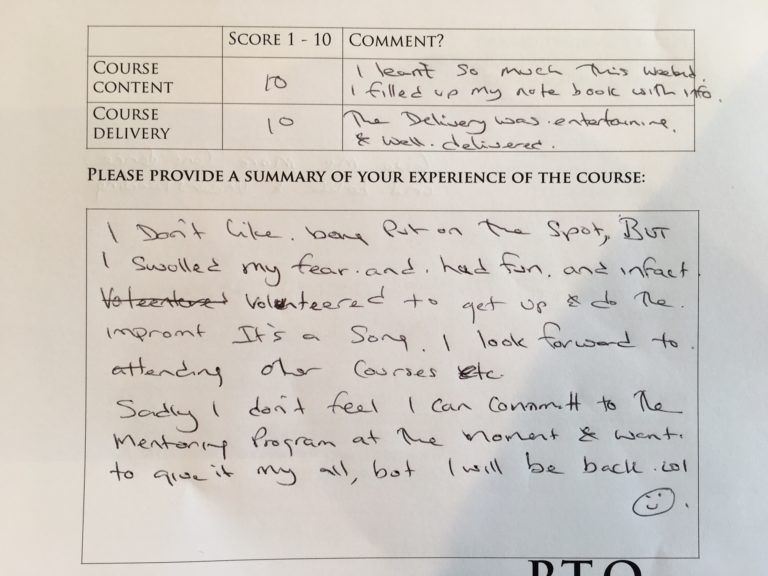 SCORE 1 - 10 COMMENT?
COURSE CONTENT 10 I learnt So much This weekend.
I filled up my note book with info.
COURSE DELIVERY 10 The Delivery was entertaining.
& well delivered.
PLEASE PROVIDE A SUMMARY OF YOUR EXPERIENCE OF THE COURSE:
I Don't like being Put on The Spot, BUT
I Swolled my fear and had fun, and infact
Volunteered to get up & do The
impromt It's a Song. I look forward to
attending other Courses etc.
Sadly I don't feel I can Committ to The
Mentoring Program at The moment & want
to give it my all, but I will be back
PTO